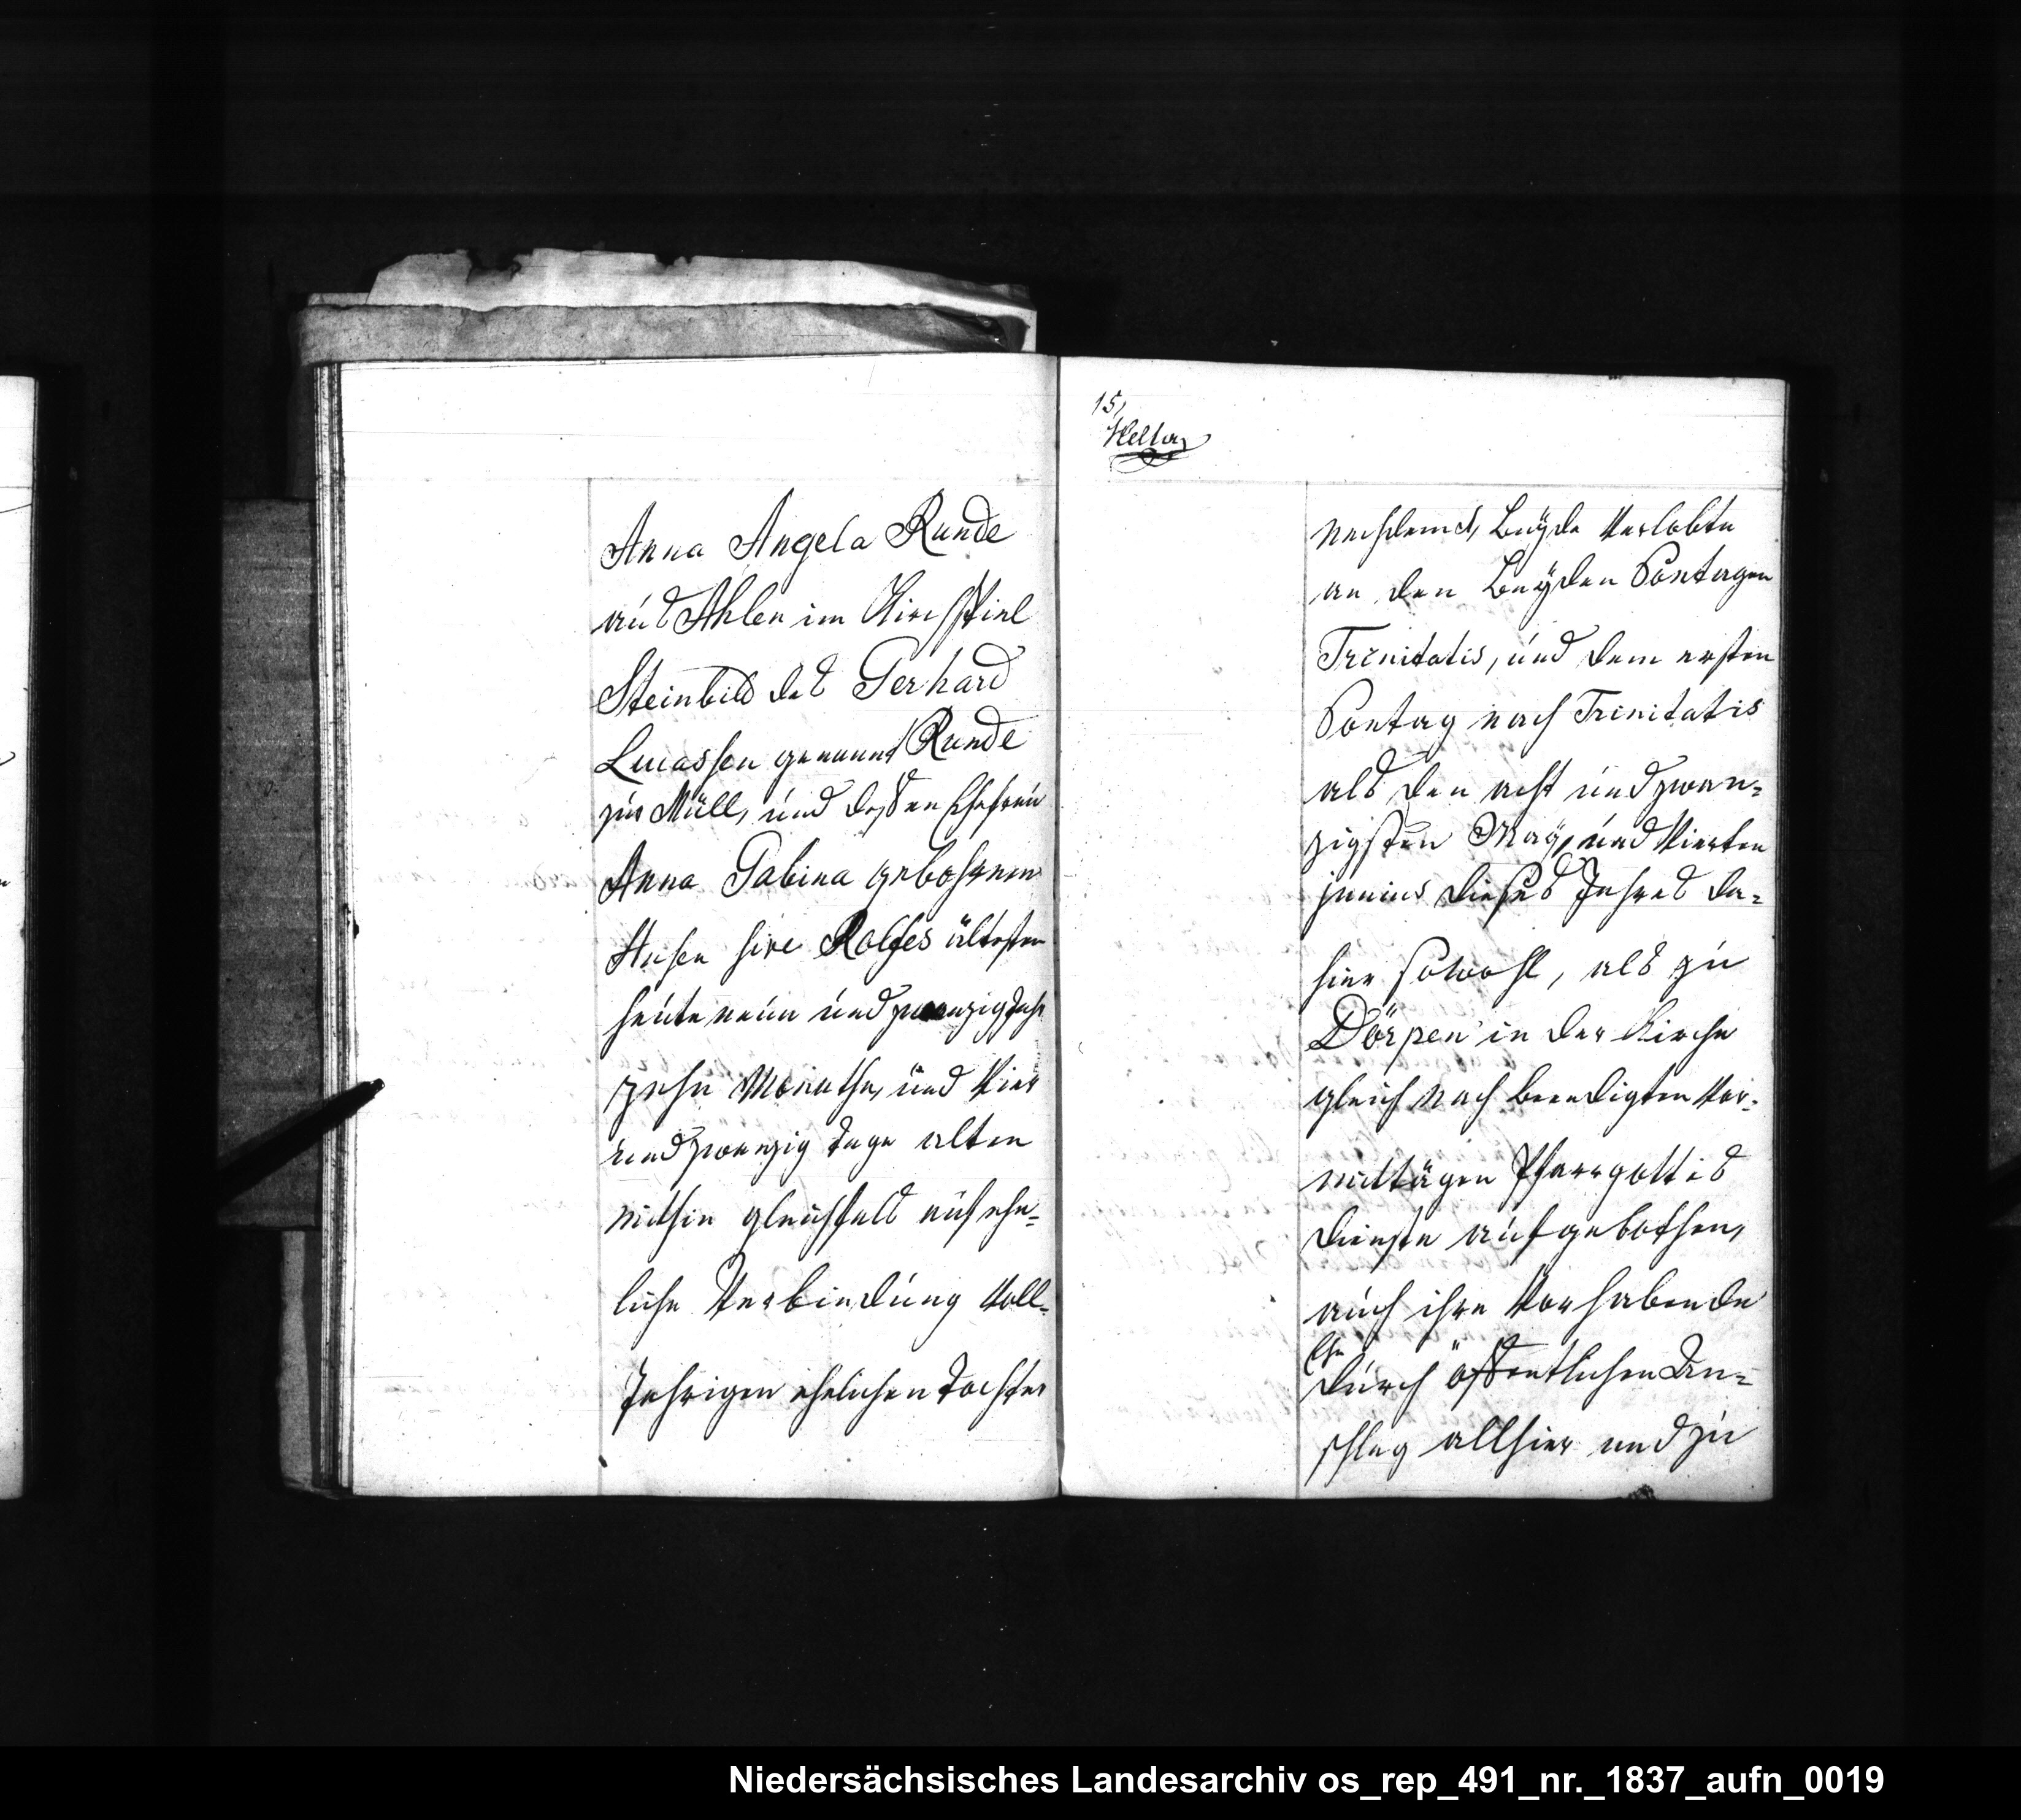 Anna Angela Runde
aus Ahlen im Kirchspiel
Steinbild des Gerhard
Lucassen genannt Runde
zur Müll, und deßen Ehefrau
Anna Gabina gebohrnen
sive Rolfes ältesten
heute neun und zwanzig Jahr
zehn Monathe, und Vier
und zwanzig Tage alten
mithin gleichfals auf ehe=
liche Verbindung Voll=
Jehrigen ehelichen Tochter
15,
nachdem, beÿde Verlobte
an den beÿden Sontagen
Trinitatis, und dem ersten
Sontag nach Trinitatis
als den acht und zwan=
zigsten Maÿ, und Vierten
junius dieses Jahres da=
hier sowohl, als zu
Dörpen in der Kirche
gleich nach beendigten Vor=
mittägen Pfarrgottes
dienste aufgebothen,
auch ihre Vorhabende
Ehe
durch öffentlichen An=
schlag allhier und zu
Niedersächsisches Landesarchiv os_rep_491_nr._1837_aufn_0019